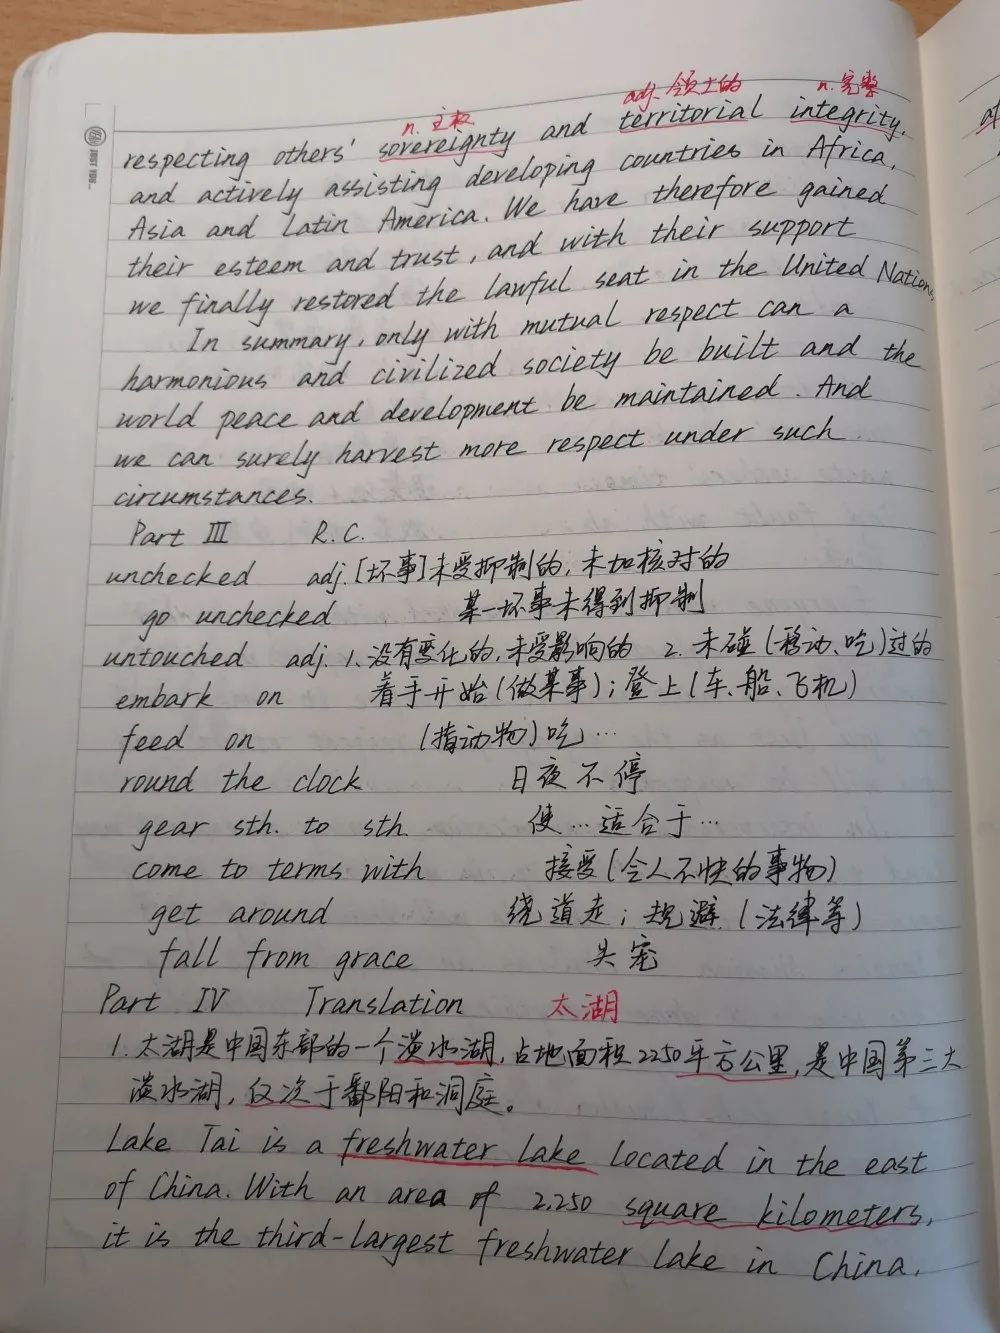 n. 主权 adj. 领土的 n. 完整
respecting others' sovereignty and territorial integrity,
and actively assisting developing countries in Africa,
Asia and Latin America. We have therefore gained
their esteem and trust, and with their support
we finally restored the lawful seat in the United Nations.
In summary, only with mutual respect can a
harmonious and civilized society be built and the
world peace and development be maintained. And
we can surely harvest more respect under such
circumstances.
Part III R.C.
unchecked adj. [坏事]未受抑制的, 未加核对的
go unchecked 某一坏事未得到抑制
untouched adj. 1. 没有变化的, 未受影响的 2. 未碰(移动、吃)过的
embark on 着手开始(做某事); 登上(车、船、飞机)
feed on (指动物)吃…
round the clock 日夜不停
gear sth. to sth. 使…适合于…
come to terms with 接受(令人不快的事物)
get around 绕道走; 规避 (法律等)
fall from grace 失宠
Part IV Translation 太湖
1. 太湖是中国东部的一个淡水湖, 占地面积2250平方公里, 是中国第三大
淡水湖, 仅次于鄱阳和洞庭。
Lake Tai is a freshwater lake located in the east
of China. With an area of 2,250 square kilometers,
it is the third-largest freshwater lake in China,
JUST YOU..